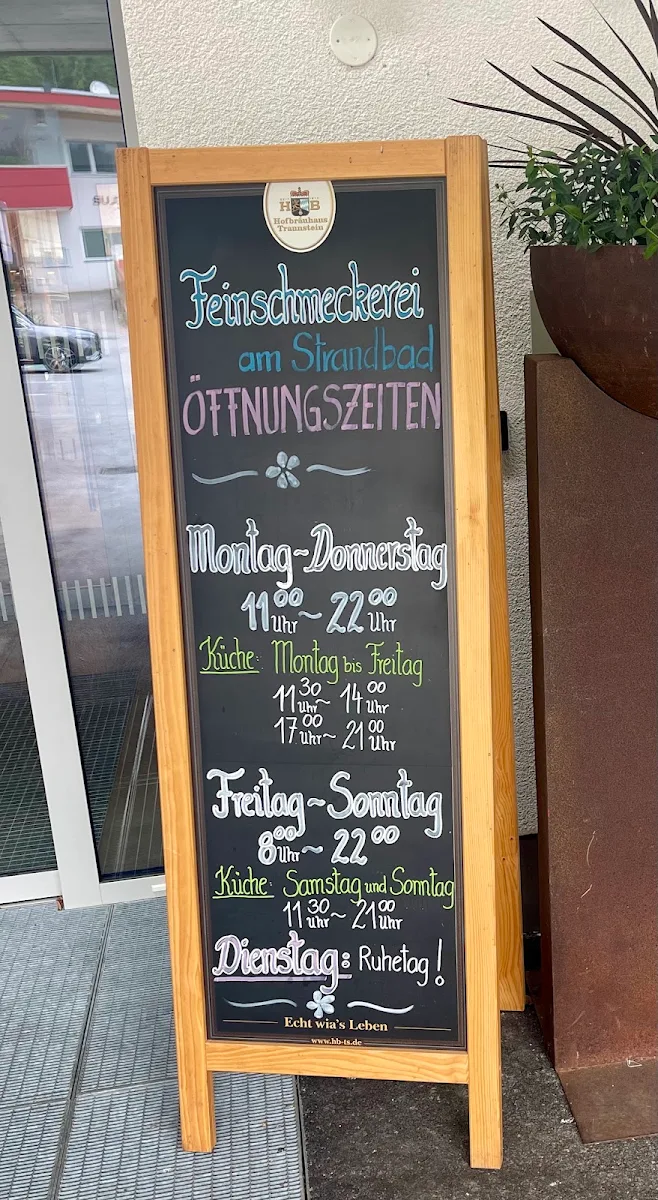 HB
Hofbräuhaus
Traunstein
Feinschmeckerei
am Strandbad
ÖFFNUNGSZEITEN
Montag~Donnerstag
11⁰⁰ Uhr ~ 22⁰⁰ Uhr
Küche: Montag bis Freitag
11³⁰ Uhr ~ 14⁰⁰
17⁰⁰ Uhr ~ 21⁰⁰ Uhr
Freitag~Sonntag
8⁰⁰ Uhr ~ 22⁰⁰
Küche: Samstag und Sonntag
11³⁰ Uhr ~ 21⁰⁰ Uhr
Dienstag: Ruhetag!
Echt wia's Leben
www.hb-ts.de